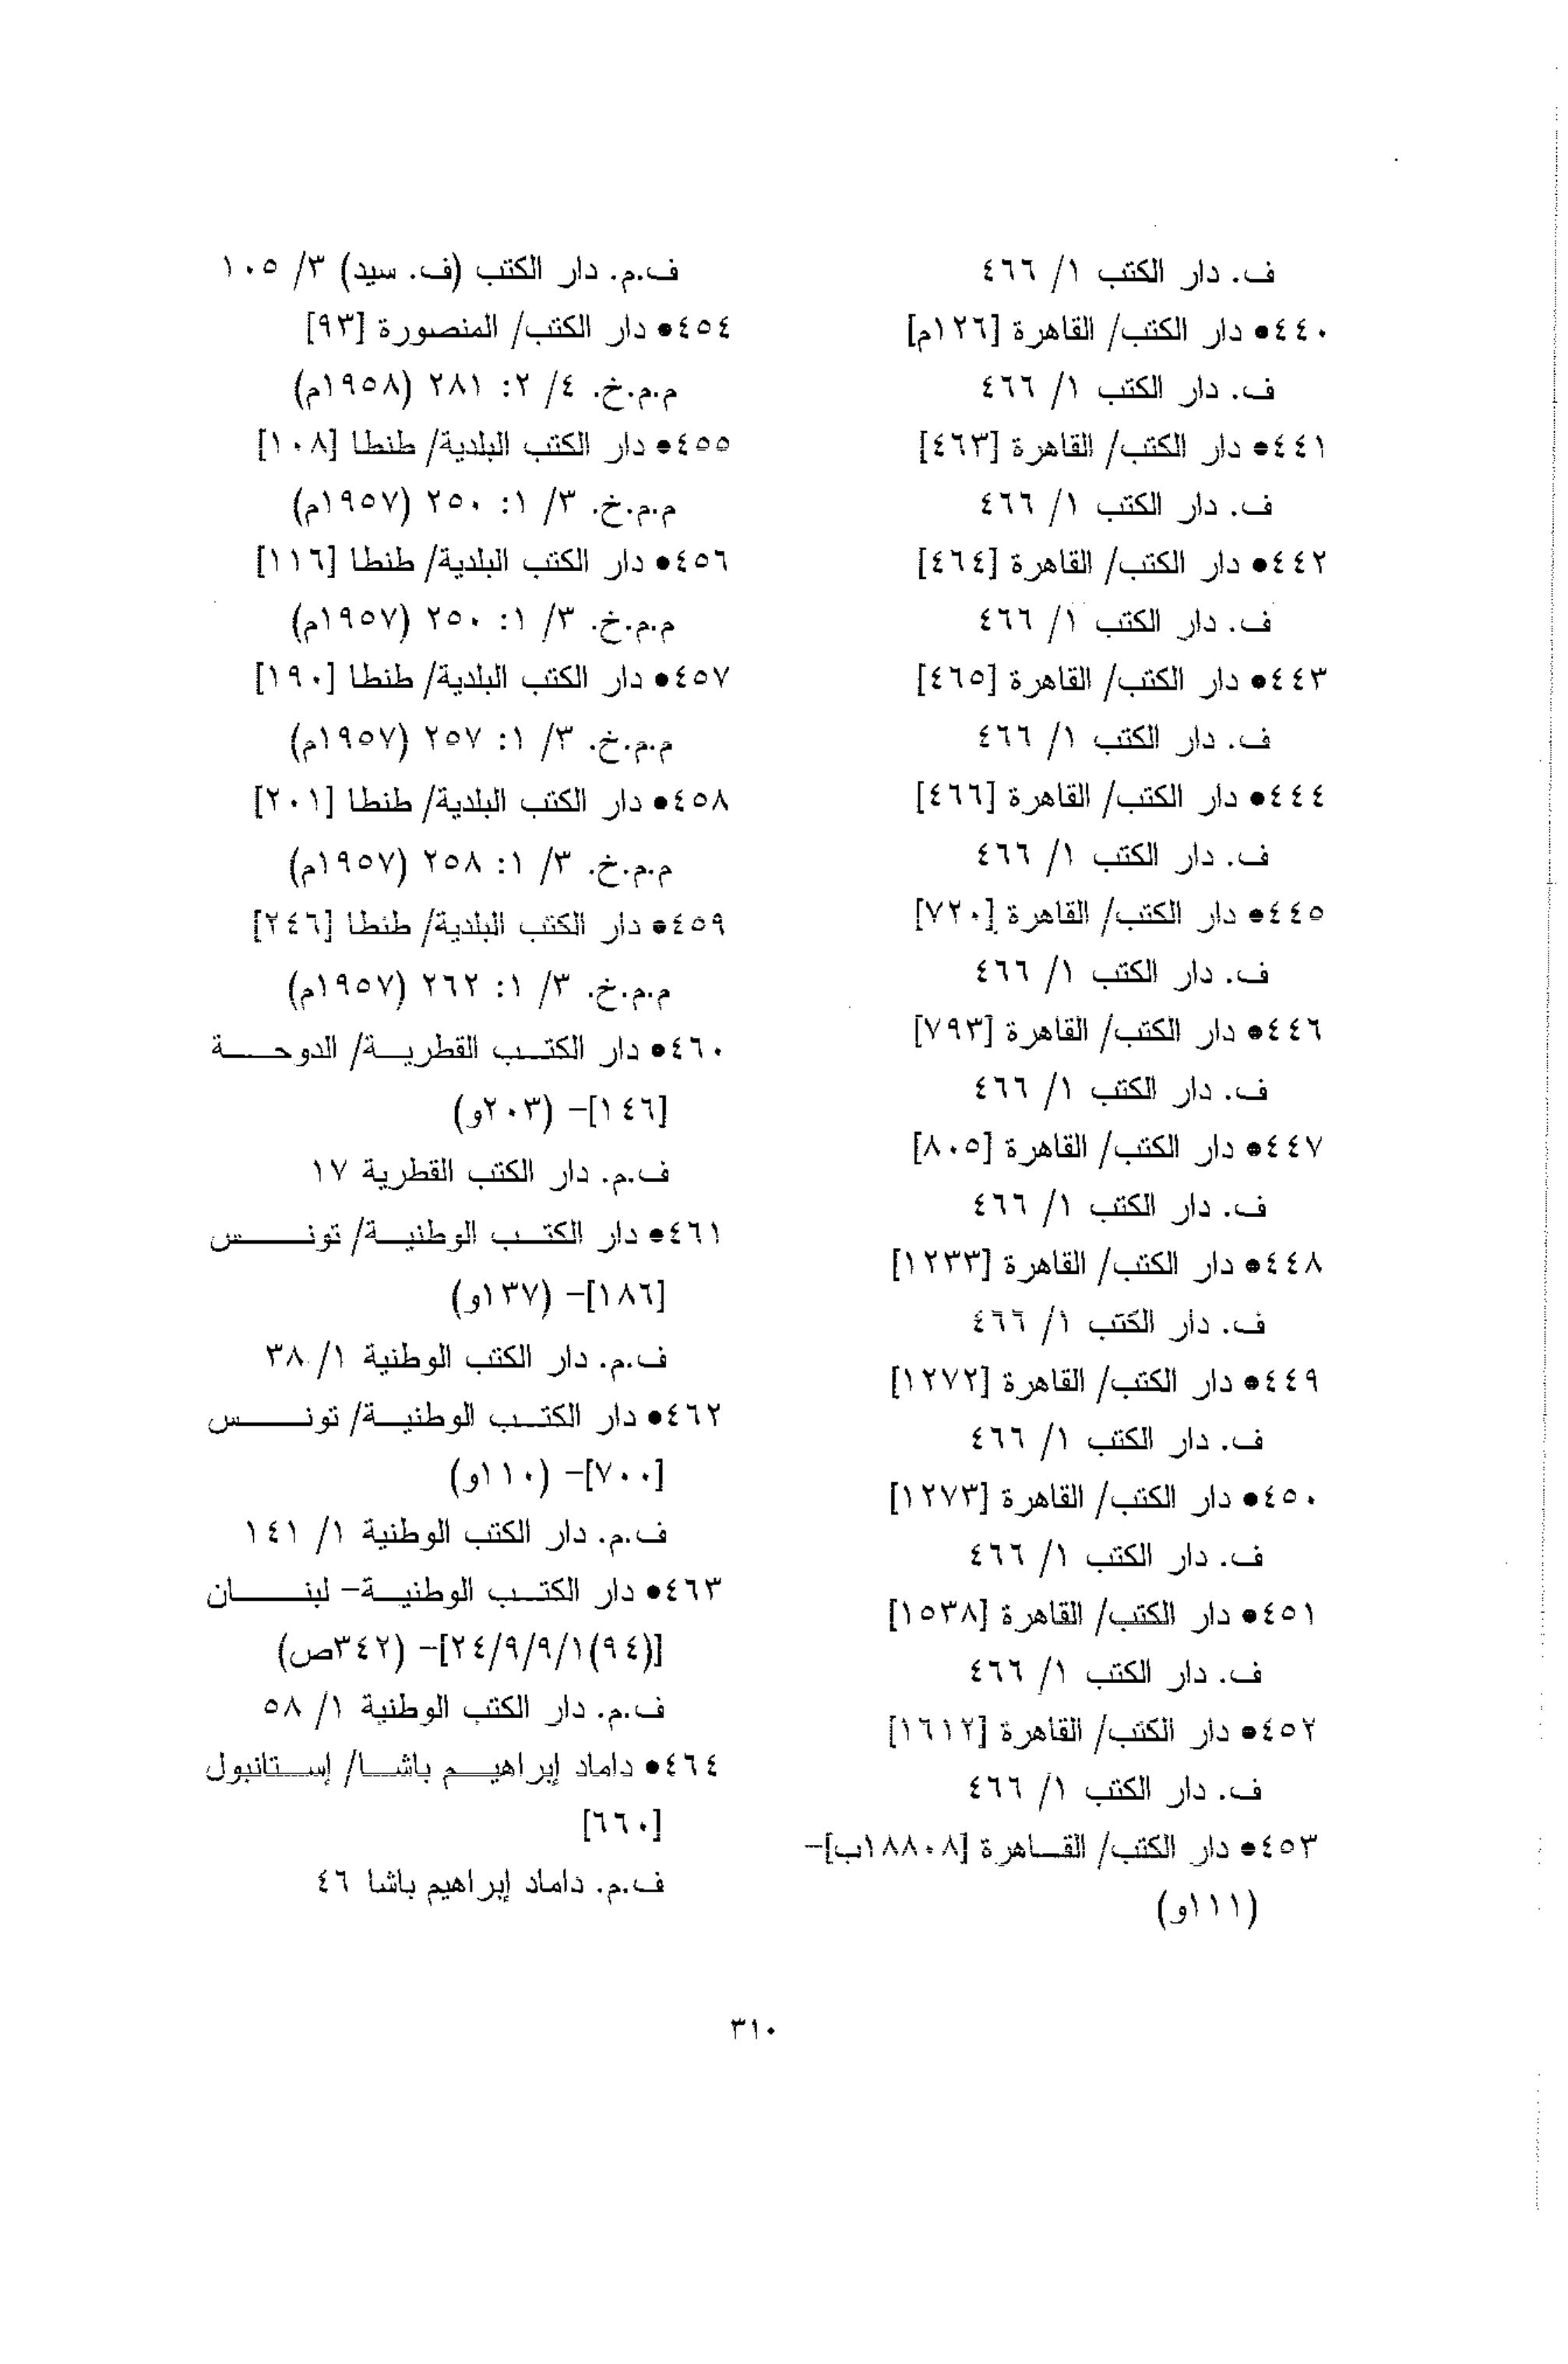 ف. دار الكتب ١/ ٤٦٦
٤٤٠● دار الكتب/ القاهرة [١٢٦م]
ف. دار الكتب ١/ ٤٦٦
٤٤١● دار الكتب/ القاهرة [٤٦٣]
ف. دار الكتب ١/ ٤٦٦
٤٤٢● دار الكتب/ القاهرة [٤٦٤]
ف. دار الكتب ١/ ٤٦٦
٤٤٣● دار الكتب/ القاهرة [٤٦٥]
ف. دار الكتب ١/ ٤٦٦
٤٤٤● دار الكتب/ القاهرة [٤٦٦]
ف. دار الكتب ١/ ٤٦٦
٤٤٥● دار الكتب/ القاهرة [٧٢٠]
ف. دار الكتب ١/ ٤٦٦
٤٤٦● دار الكتب/ القاهرة [٧٩٣]
ف. دار الكتب ١/ ٤٦٦
٤٤٧● دار الكتب/ القاهرة [٨٠٥]
ف. دار الكتب ١/ ٤٦٦
٤٤٨● دار الكتب/ القاهرة [١٢٣٣]
ف. دار الكتب ١/ ٤٦٦
٤٤٩● دار الكتب/ القاهرة [١٢٧٢]
ف. دار الكتب ١/ ٤٦٦
٤٥٠● دار الكتب/ القاهرة [١٢٧٣]
ف. دار الكتب ١/ ٤٦٦
٤٥١● دار الكتب/ القاهرة [١٥٣٨]
ف. دار الكتب ١/ ٤٦٦
٤٥٢● دار الكتب/ القاهرة [١٦١٢]
ف. دار الكتب ١/ ٤٦٦
٤٥٣● دار الكتب/ القاهرة [١٨٨٠٨ب]–
(١١١و)
ف.م. دار الكتب (ف. سيد) ٣/ ١٠٥
٤٥٤● دار الكتب/ المنصورة [٩٣]
م.م.خ. ٤/ ٢: ٢٨١ (١٩٥٨م)
٤٥٥● دار الكتب البلدية/ طنطا [١٠٨]
م.م.خ. ٣/ ١: ٢٥٠ (١٩٥٧م)
٤٥٦● دار الكتب البلدية/ طنطا [١١٦]
م.م.خ. ٣/ ١: ٢٥٠ (١٩٥٧م)
٤٥٧● دار الكتب البلدية/ طنطا [١٩٠]
م.م.خ. ٣/ ١: ٢٥٧ (١٩٥٧م)
٤٥٨● دار الكتب البلدية/ طنطا [٢٠١]
م.م.خ. ٣/ ١: ٢٥٨ (١٩٥٧م)
٤٥٩● دار الكتب البلدية/ طنطا [٢٤٦]
م.م.خ. ٣/ ١: ٢٦٢ (١٩٥٧م)
٤٦٠● دار الكتب القطرية/ الدوحة
[١٤٦]– (٢٠٣و)
ف.م. دار الكتب القطرية ١٧
٤٦١● دار الكتب الوطنية/ تونس
[١٨٦]– (١٣٧و)
ف.م. دار الكتب الوطنية ١/ ٣٨
٤٦٢● دار الكتب الوطنية/ تونس
[٧٠٠]– (١١٠و)
ف.م. دار الكتب الوطنية ١/ ١٤١
٤٦٣● دار الكتب الوطنية– لبنان
[(٩٤)٢٤/٩/٩/١]– (٣٤٢ص)
ف.م. دار الكتب الوطنية ١/ ٥٨
٤٦٤● داماد إبراهيم باشا/ إستانبول
[٦٦٠]
ف.م. داماد إبراهيم باشا ٤٦
٣١٠